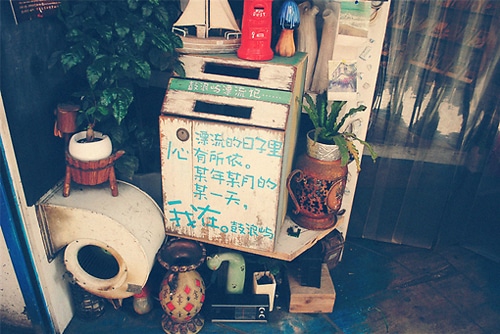 鼓浪屿漂流记……
漂流的日子里
心有所依。
某年某月的
某一天，
我在。鼓浪屿